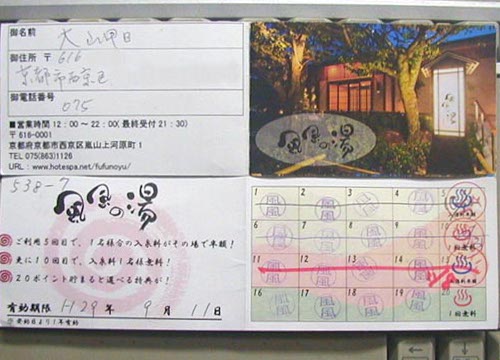 御名前
大山甲日
御住所 〒616
京都市西京区
御電話番号
075
■営業時間 12:00～22:00(最終受付21:30)
〒616-0001
京都府京都市西京区嵐山上河原町1
TEL 075(863)1126
URL : www.hotespa.net/fufunoyu/
風風の湯
風風の湯
538-7
風風の湯
ご利用5回目で、1名様分の入泉料がその場で半額!
更に10回目で、入泉料1名様無料!
20ポイント貯まると選べる特典が!
有効期限 H29年 9月 11日
1 2 3 4 5
6
11
16 17 18 19 20
1回無料
1回無料